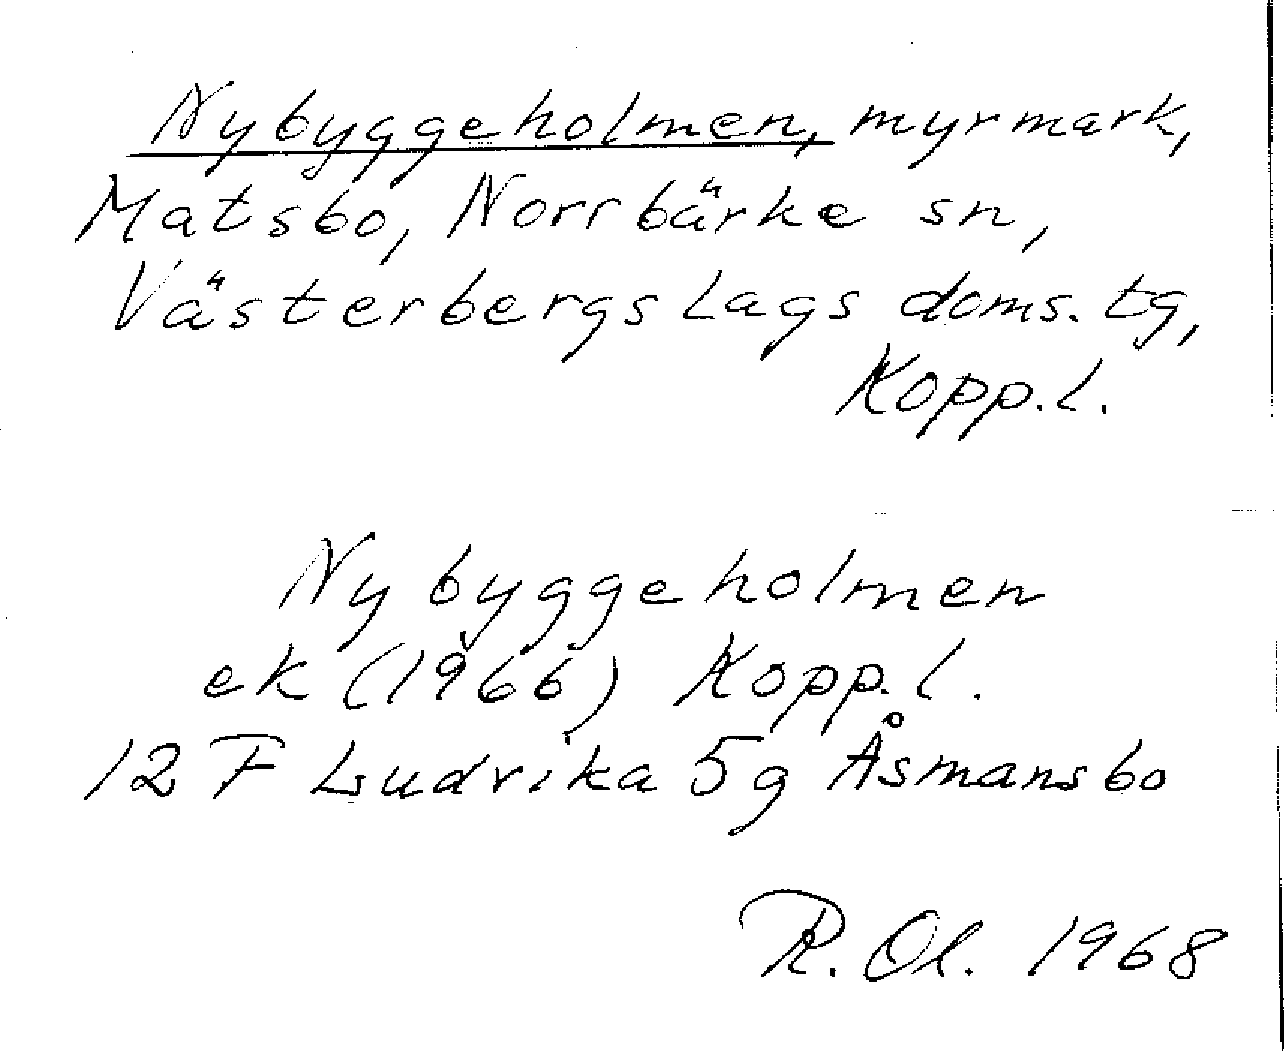 Nybyggeholmen, myrmark,
Matsbo, Norrbärke sn,
Västerbergslags doms. tg,
Kopp. l.
Nybyggeholmen
ek (1966) Kopp. l.
12 F Ludvika 5g Åsmansbo
R. Ol. 1968